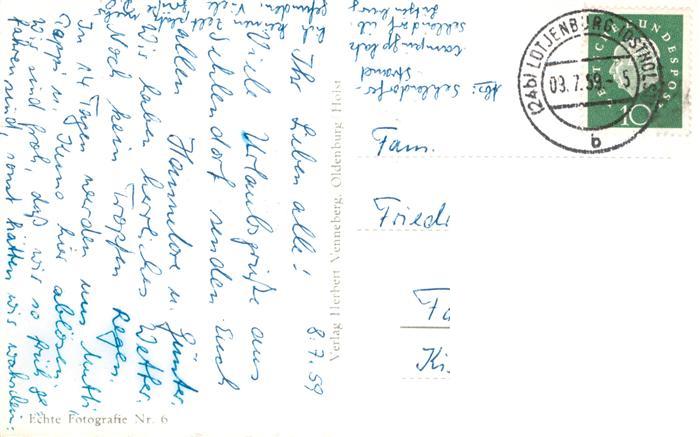 8.7.59
Ihr Lieben alle!
Viele Urlaubsgrüße aus
Sehlendorf senden Euch
allen Hannelore u. Günter.
Wir haben herrliches Wetter.
Noch kein Tropfen Regen.
In 14 Tagen werden uns Mutti,
Pappi u. hier ablösen.
Wir sind froh, daß wir so früh ge-
fahren sind, sonst hätten wir
keinen Zelt
gefunden. Viele
Abs: Sehlendorfer-
Strand
Campingplatz
Sehlendorf üb.
Verlag Herbert Venneberg, Oldenburg / Holst
Echte Fotografie Nr. 6
(24b) LÜTJENBURG (OSTHOLST)
09.7.59. 5
b
DEUTSCHE BUNDESPOST
10
Fam.
Friedr
Fa
Ki